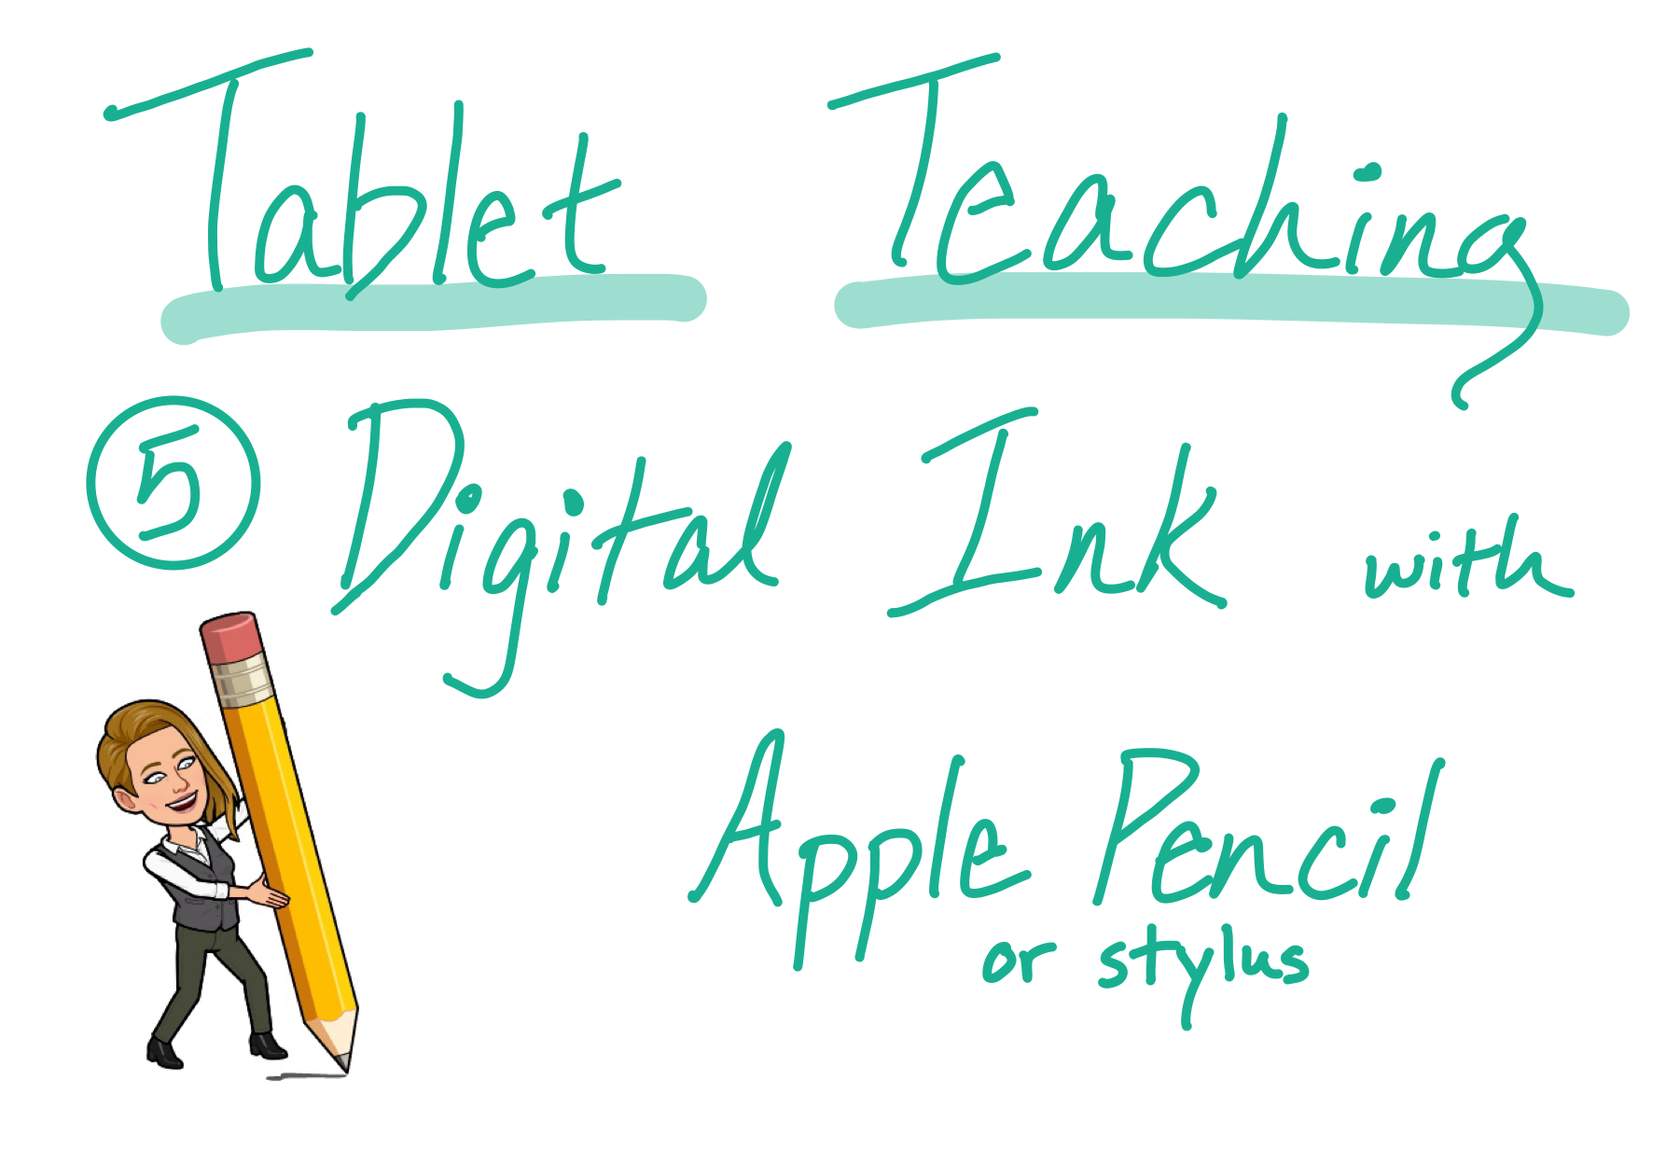 Tablet Teaching
5 Digital Ink with
Apple Pencil
or stylus